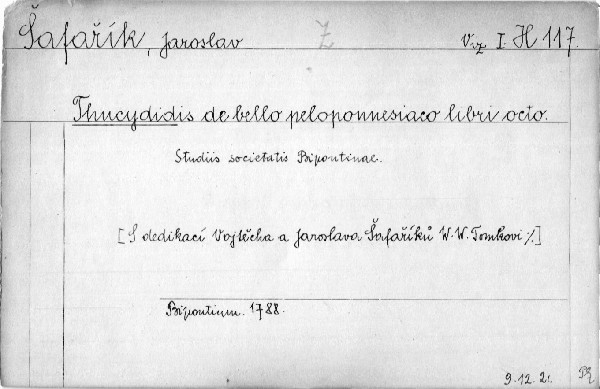 Šafařík, Jaroslav Z Viz I. H 117.
Thucydidis de bello peloponnesiaco libri octo.
Studiis societatis Bipontinae.
[S dedikací Vojtěcha a Jaroslava Šafaříků W. W. Tomkovi %]
Bipontium. 1788.
9. 12. 21.